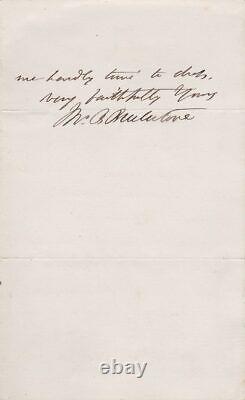 me hardly time to dress,
very faithfully Yours
ebay